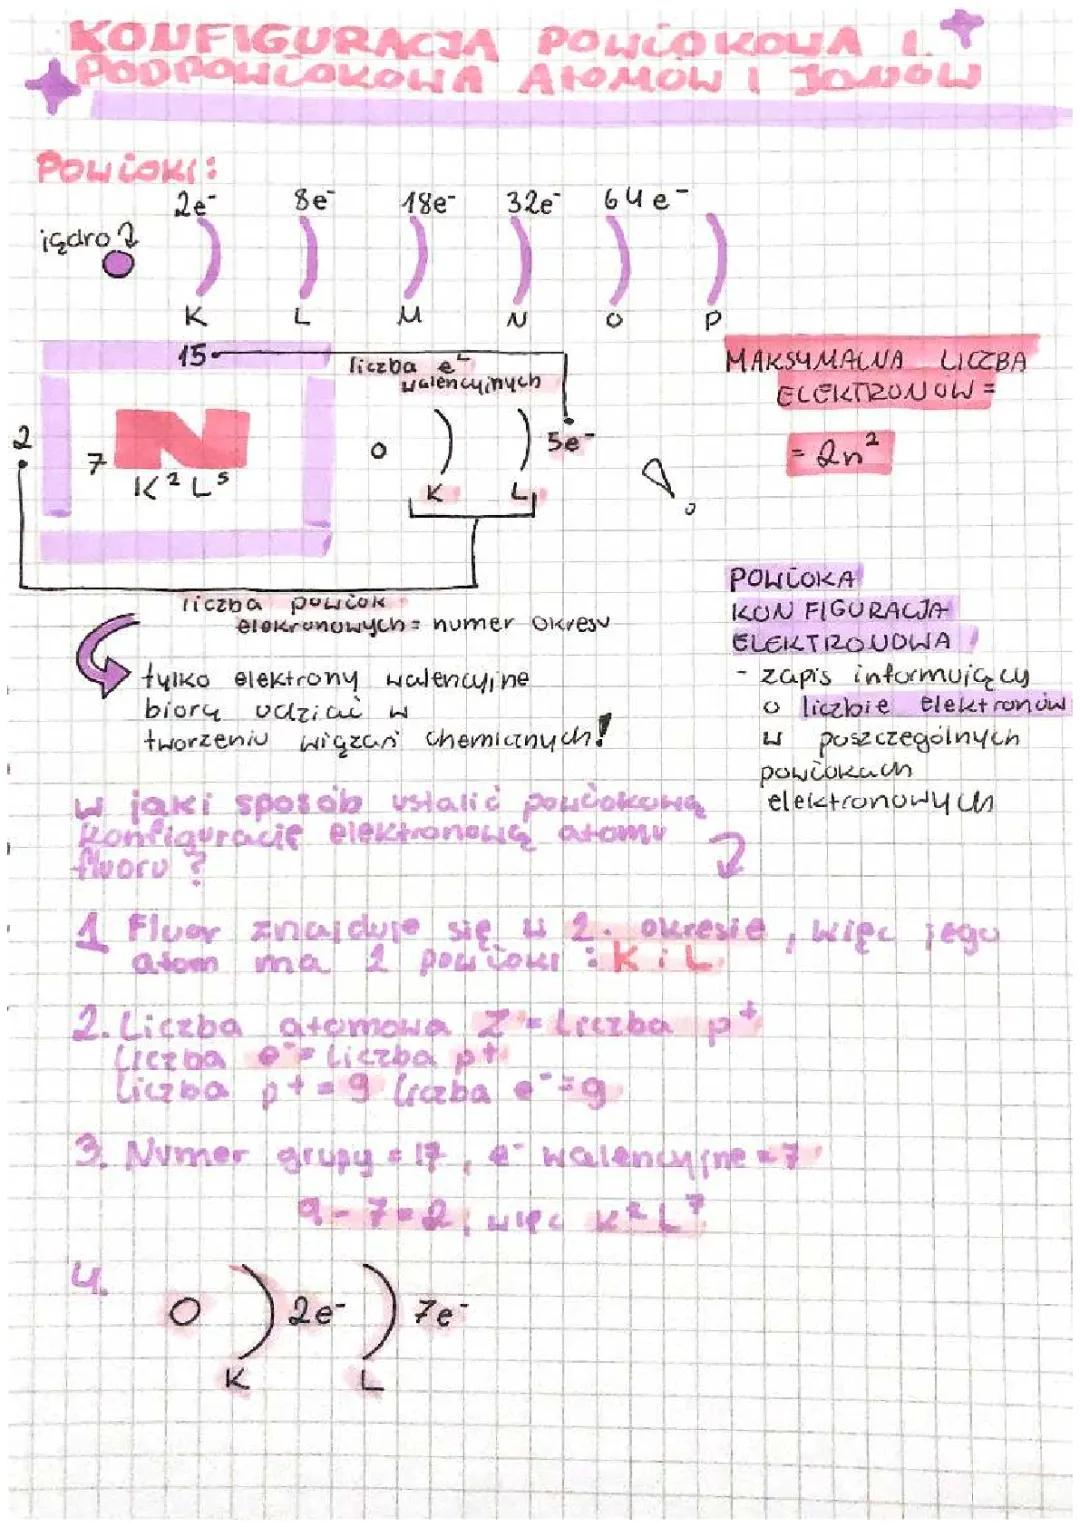 KONFIGURACJA POWŁOKOWA I
PODPOWŁOKOWA ATOMÓW I JONÓW
POWŁOKI:
2e⁻ 8e⁻ 18e⁻ 32e⁻ 64e⁻
jądro
K L M N O P
15
liczba e⁻
walencyjnych
MAKSYMALNA LICZBA
ELEKTRONÓW =
= 2n²
2
7 N
K² L⁵
5e⁻
K L
liczba powłok
elekronowych = numer okresu
tylko elektrony walencyjne
biorą udział w
tworzeniu wiązań chemicznych!
POWŁOKA
KONFIGURACJA
ELEKTRONOWA
- zapis informujący
o liczbie elektronów
w poszczególnych
powłokach
elektronowych
w jaki sposób ustalić powłokową
konfigurację elektronową atomu
fluoru ?
1 Fluor znajduje się w 2. okresie, więc jego
atom ma 2 powłoki : K i L.
2. Liczba atomowa Z = Liczba p⁺
Liczba e⁻ = Liczba p+
Liczba p+ = 9 Liczba e⁻ = 9
3. Numer grupy = 17, e⁻ walencyjne = 7
9 - 7 = 2, więc K² L⁷
4.
2e⁻ 7e⁻
K L